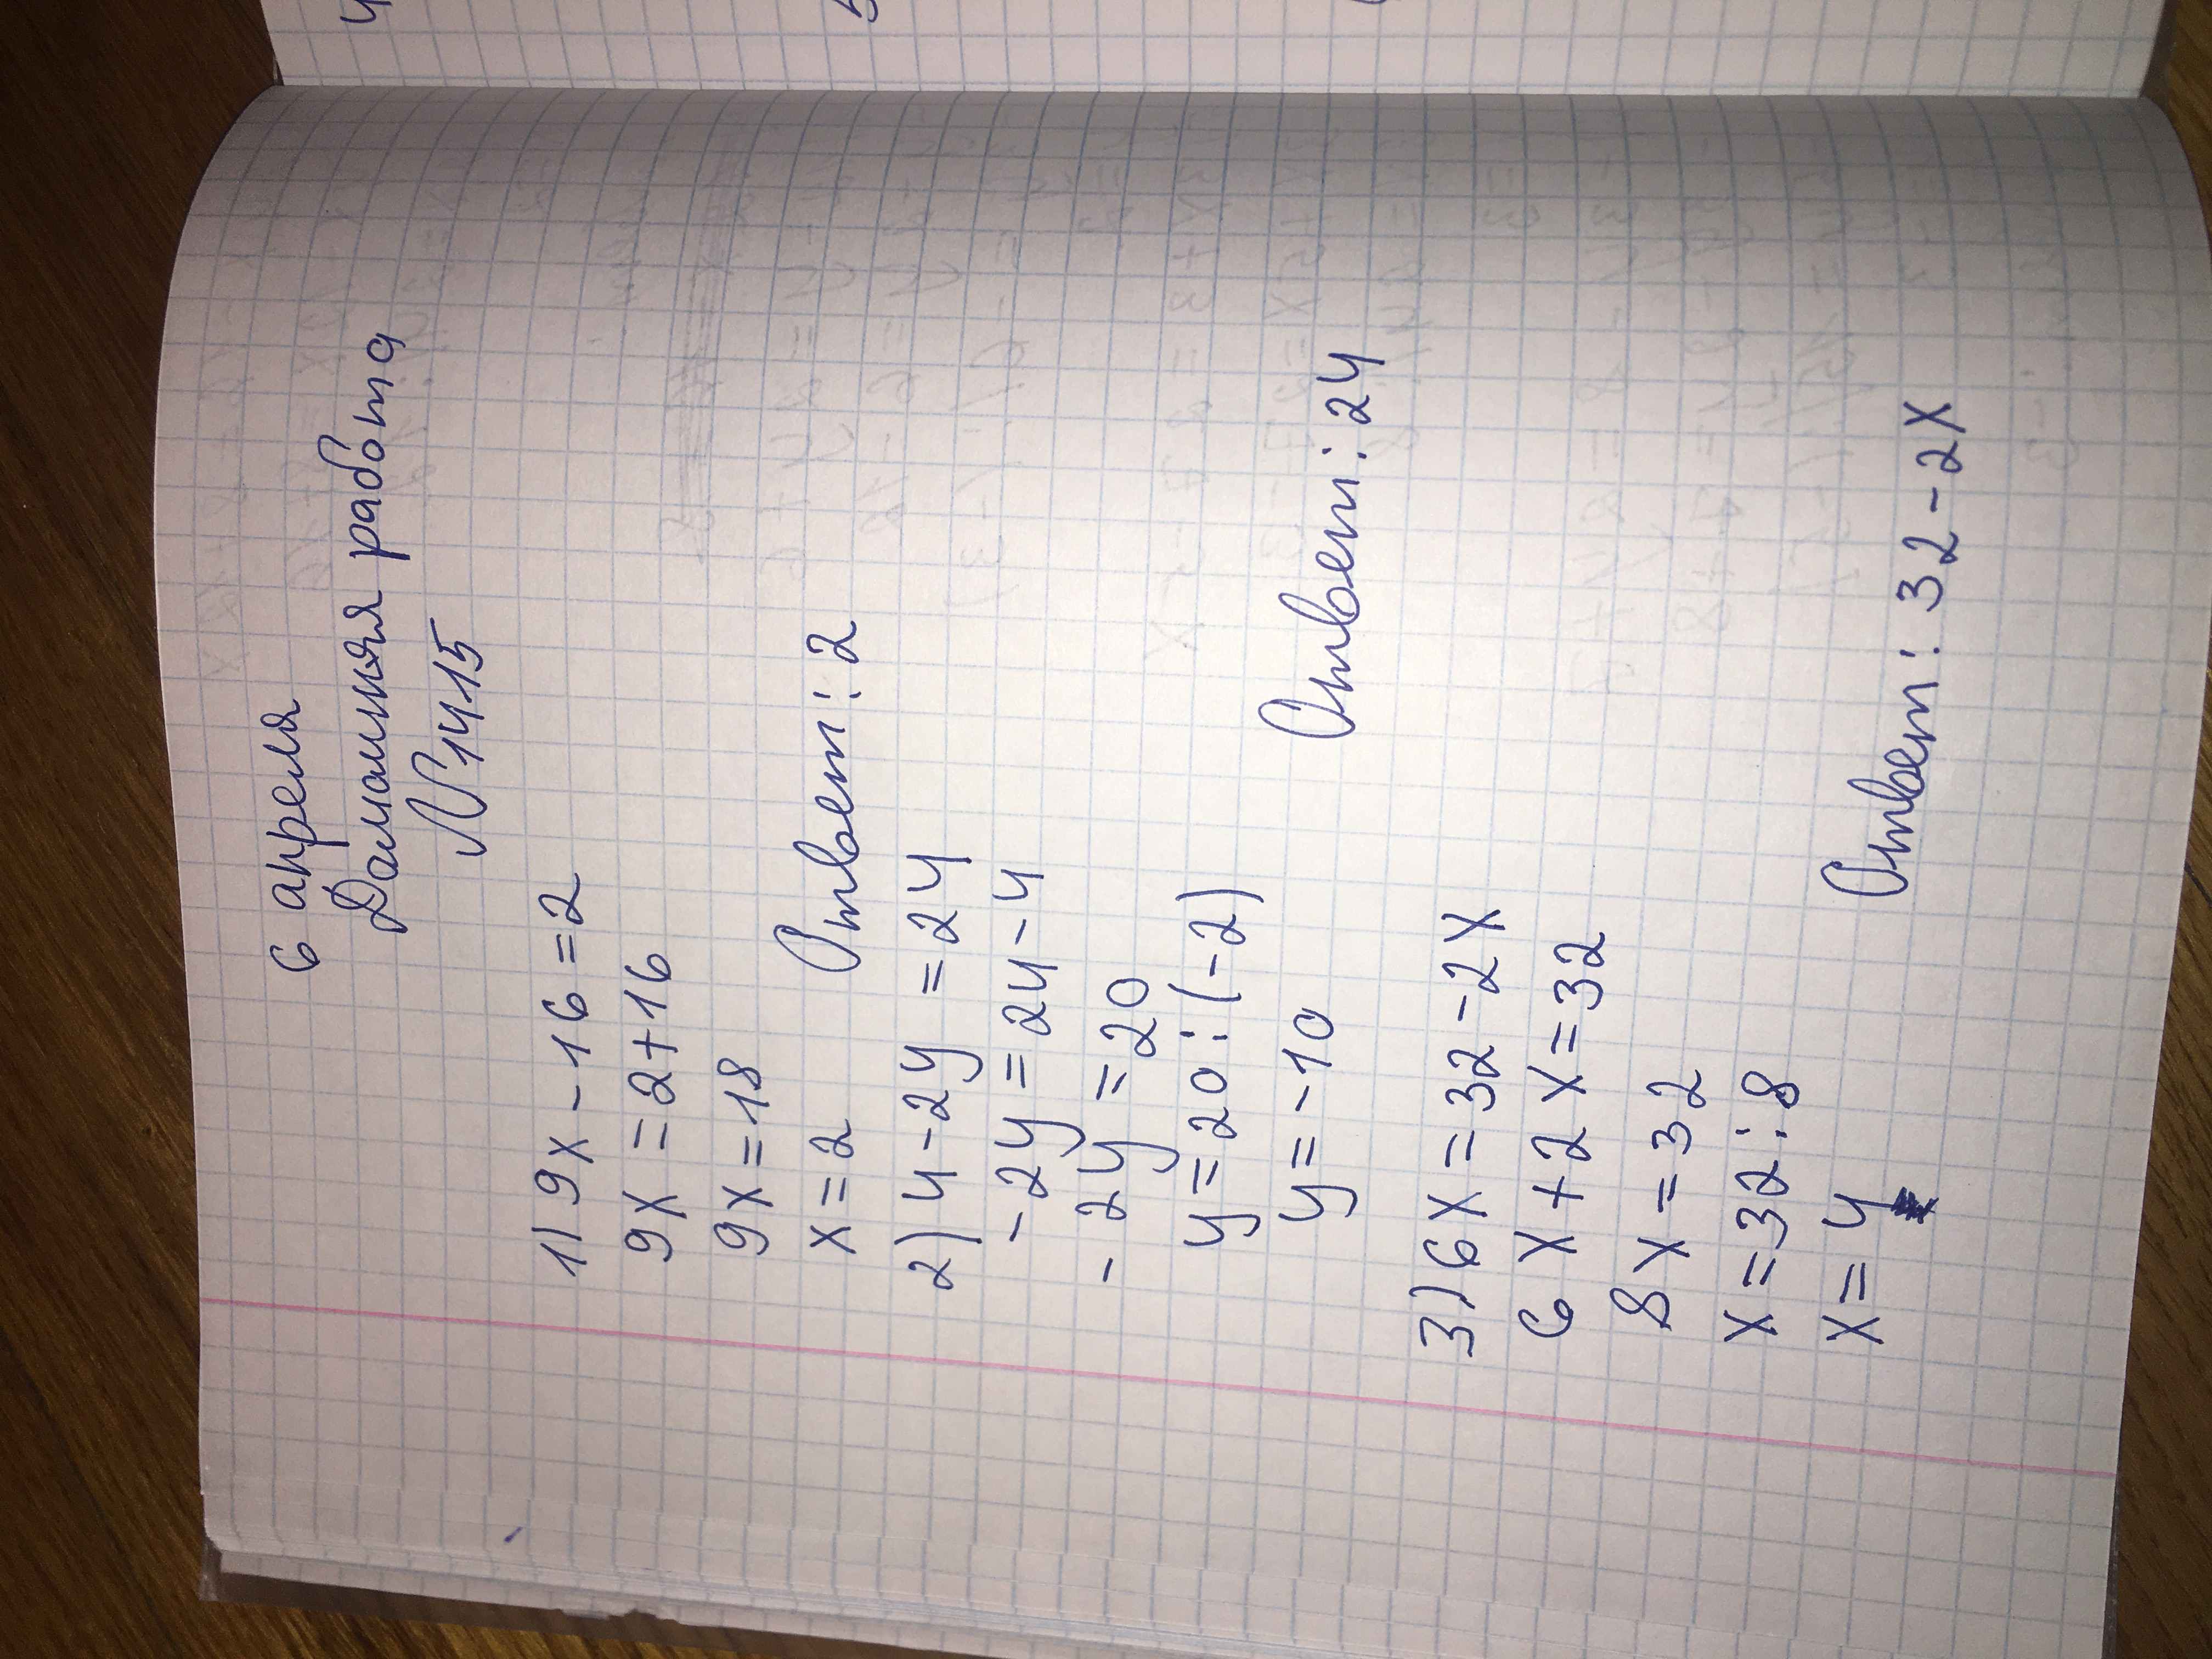 6 апреля
Домашняя работа
№1415
1) 9x-16=2
9x=2+16
9x=18
x=2
Ответ: 2
2) 4-2y=24
-2y=24-4
-2y=20
y=20:(-2)
y=-10
Ответ: 24
3) 6x=32-2x
6x+2x=32
8x=32
x=32:8
x=4
Ответ: 32-2x